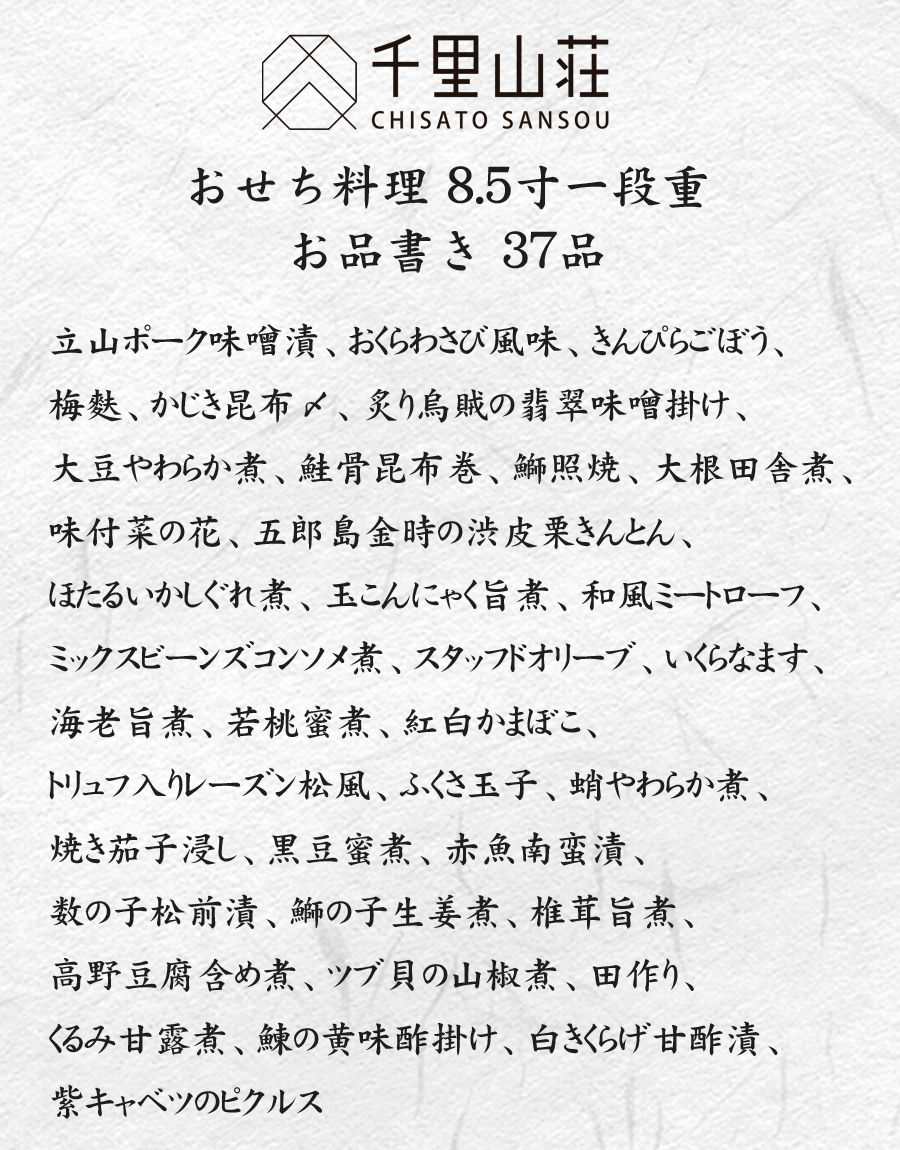 千里山荘
CHISATO SANSOU
おせち料理 8.5寸一段重
お品書き 37品
立山ポーク味噌漬、おくらわさび風味、きんぴらごぼう、
梅麩、かじき昆布〆、炙り烏賊の翡翠味噌掛け、
大豆やわらか煮、鮭骨昆布巻、鰤照焼、大根田舎煮、
味付菜の花、五郎島金時の渋皮栗きんとん、
ほたるいかしぐれ煮、玉こんにゃく旨煮、和風ミートローフ、
ミックスビーンズコンソメ煮、スタッフドオリーブ、いくらなます、
海老旨煮、若桃蜜煮、紅白かまぼこ、
トリュフ入りレーズン松風、ふくさ玉子、蛸やわらか煮、
焼き茄子浸し、黒豆蜜煮、赤魚南蛮漬、
数の子松前漬、鰤の子生姜煮、椎茸旨煮、
高野豆腐含め煮、ツブ貝の山椒煮、田作り、
くるみ甘露煮、鰊の黄味酢掛け、白きくらげ甘酢漬、
紫キャベツのピクルス